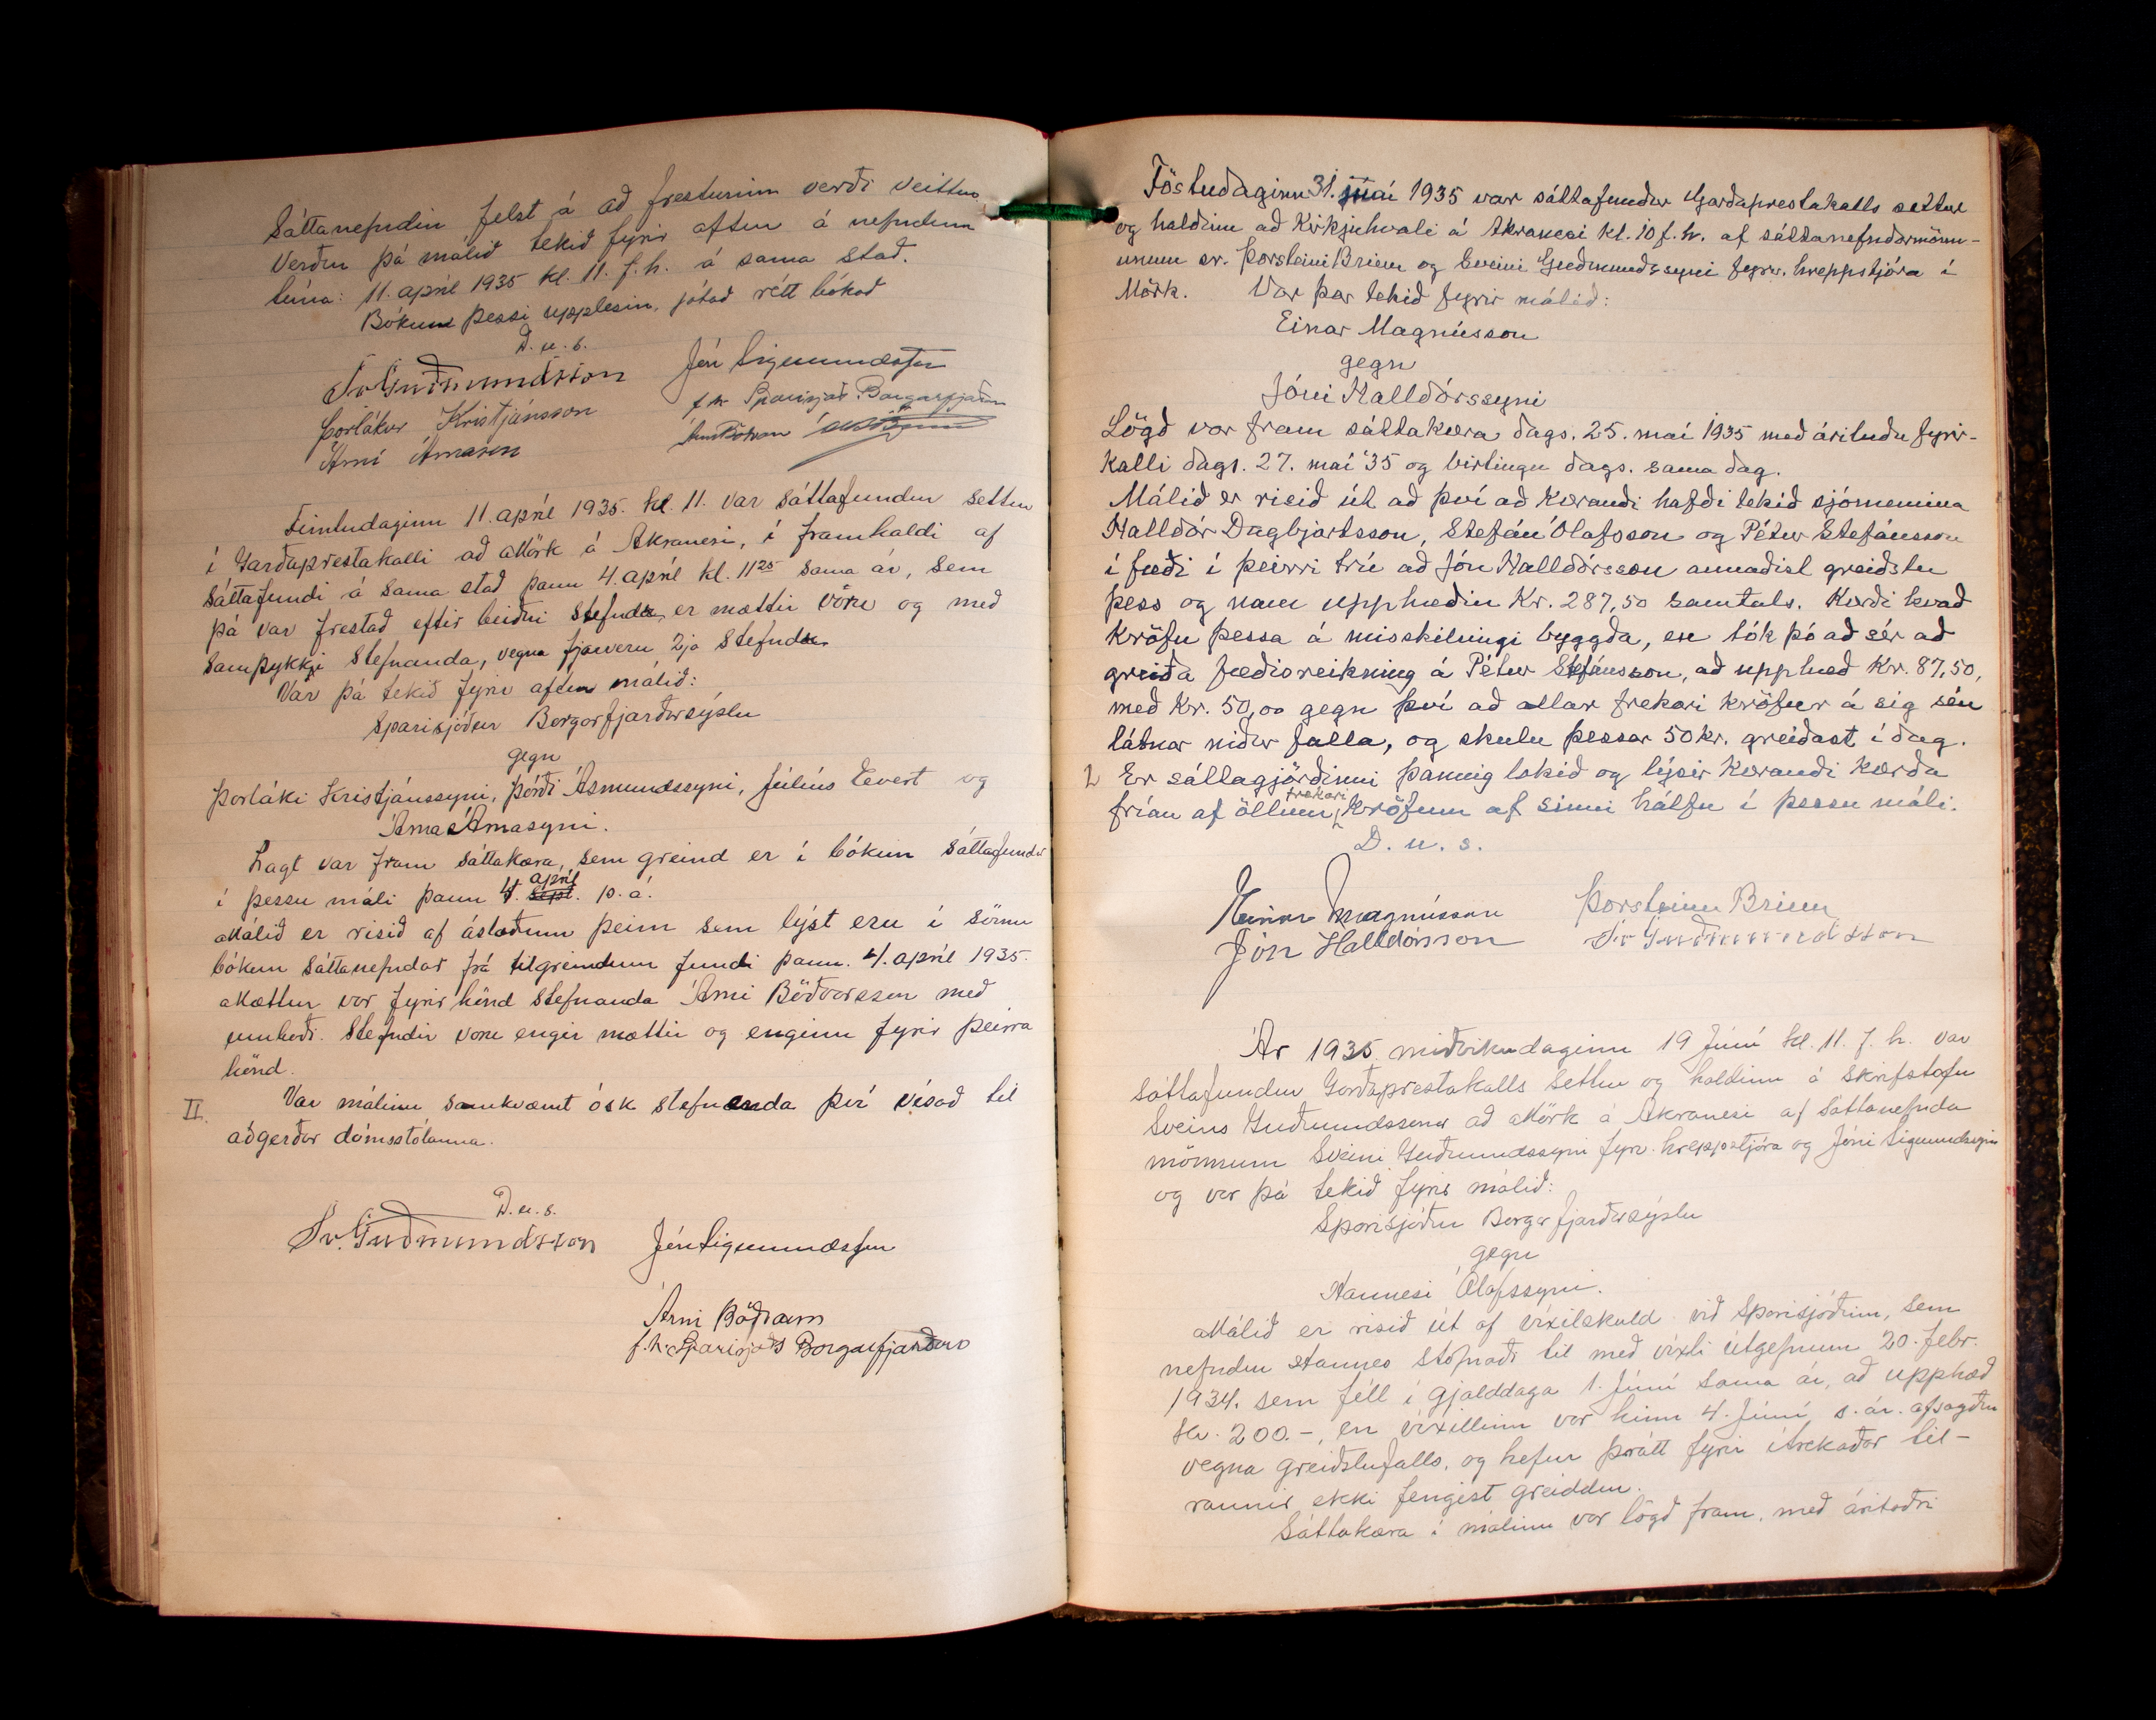 Sáttanefndin felst á að fresturinn verði veittur
Verður þá málið tekið fyrir aftur á nefndum
tíma: 11. apríl 1935 kl. 11. f.h. á sama stað.
Bókun þessi upplesin, játað rétt bókað
D. u. s.
Sv Guðmundsson Jón Sigmundsson
Þorlákur Kristjánsson f.h. Sparisjóðs Borgarfjarðar
Árni Árnason
Fimtudaginn 11. apríl 1935. kl. 11. var sáttafundur settur
í Garðaprestakalli að Mörk á Akranesi, í framhaldi af
sáttafundi á sama stað þann 4. apríl kl. 11 25 sama ár, sem
þá var frestað eftir beiðni stefndra er mættir vóru og með
samþykki stefnanda, vegna fjarveru 2ja stefndra
Var þá tekið fyrir aftur málið:
Sparisjóður Borgarfjarðarsýslu
gegn
Þorláki Kristjánssyni, Þórði Ásmundssyni, Júlíus Evert og
Árna Árnasyni.
Lagt var fram sáttakæra, sem greind er í bókun sáttafundar
í þessu máli þann 4. sept. apríl þ. á.
Málið er risið af ástæðum þeim sem lýst eru í sömu
bókun sáttanefndar frá tilgreindum fundi þann. 4. apríl 1935.
Mættur var fyrir hönd stefnanda Árni Böðvarsson með
umboði. Stefndir voru engir mættir og enginn fyrir þeirra
hönd.
II. Var málinu samkvæmt ósk stefnanda því vísað til
aðgerðar dómsstólanna.
D. u. s.
Sv. Guðmundsson Jón Sigmundsson
Árni Böðvarsson
f.h. Sparisjóðs Borgarfjarðar
Föstudaginn 31. maí 1935 var sáttafundur Garðaprestakalls settur
og haldinn að Kirkjuhvoli á Akranesi kl. 10 f.h. af sáttanefndarmönn-
unum sr. Þorsteini Briem og Sveini Guðmundssyni fyrv. hreppstjóra í
Mörk. Var þar tekið fyrir málið:
Einar Magnússon
gegn
Jóni Halldórssyni
Lögð var fram sáttakæra dags. 25. maí 1935 með árituðu fyrir-
kalli dags. 27. maí '35 og birtingu dags. sama dag.
Málið er risið út að því að kærandi hafði tekið sjómennina
Halldór Dagbjartsson, Stefán Ólafsson og Pétur Stefánsson
í fæði í þeirri trú að Jón Halldórsson annaðist greiðslu
þess og nam upphæðin Kr. 287,50 samtals. Kærði kvað
kröfu þessa á misskilningi byggða, en tók þó að sér að
greiða fæðisreikning á Pétur Stefánsson, að upphæð Kr. 87,50,
með Kr. 50,00 gegn því að allar frekari kröfur á sig séu
látnar niður falla, og skulu þessar 50 kr. greiðast í dag.
Er sáttagjörðinni þannig lokið og lýsir kærandi kærða
frían af öllum frekari kröfum af sinni hálfu í þessu máli.
D. u. s.
Einar Magnússon Þorsteinn Briem
Jón Halldórsson Sv Guðmundsson
Ár 1935 miðvikudaginn 19 Júní kl. 11. f. h. var
sáttafundur Garðaprestakalls settur og haldinn á skrifstofu
Sveins Guðmundssonar að Mörk á Akranesi af sáttanefnda
mönnum Sveini Guðmundssyni fyrv. hreppstjóra og Jóni Sigmundssyni
og var þá tekið fyrir málið:
Sparisjóður Borgarfjarðarsýslu
gegn
Hannesi Ólafssyni.
Málið er risið út af víxilskuld við sparisjóðinn, sem
nefndur Hannes stofnaði til með víxli útgefnum 20. febr.
1934. sem féll í gjalddaga 1. Júní sama ár, að upphæð
Kr. 200.-, en víxillinn var hinn 4. Júní s. ár. afsagður
vegna greiðslufalls, og hefur þrátt fyrir ítrekaðar til-
raunir ekki fengist greiddur.
Sáttakæra í málinu var lögð fram, með áritaðri